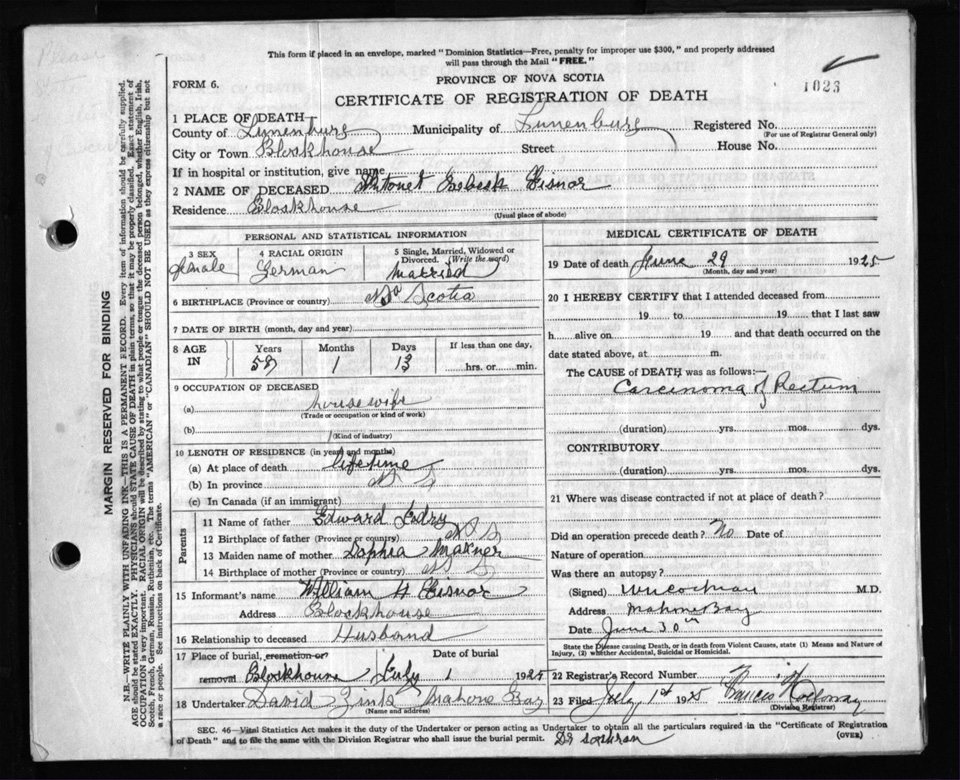 This form if placed in an envelope, marked "Dominion Statistics—Free, penalty for improper use $300," and properly addressed
will pass through the Mail "FREE."
FORM 6.
PROVINCE OF NOVA SCOTIA
1023
CERTIFICATE OF REGISTRATION OF DEATH
1 PLACE OF DEATH—
County of Lunenburg Municipality of Lunenburg Registered No.
(For use of Registrar General only)
City or Town Blockhouse Street House No.
If in hospital or institution, give name
2 NAME OF DECEASED Eisnor
Residence Blockhouse
(Usual place of abode)
PERSONAL AND STATISTICAL INFORMATION
3 SEX
Female
4 RACIAL ORIGIN
German
5 Single, Married, Widowed or
Divorced. (Write the word)
Married
6 BIRTHPLACE (Province or country) Na Scotia
7 DATE OF BIRTH (month, day and year)
8 AGE
IN
Years
Months
1
Days
13
If less than one day,
hrs. or min.
9 OCCUPATION OF DECEASED
(a) housewife
(Trade or occupation or kind of work)
(b)
(Kind of industry)
10 LENGTH OF RESIDENCE (in years and months)
(a) At place of death lifetime
(b) In province N S
(c) In Canada (if an immigrant)
Parents
11 Name of father Edward
12 Birthplace of father (Province or country) N S
13 Maiden name of mother Sophia
14 Birthplace of mother (Province or country) N S
15 Informant's name William H Eisnor
Address Blockhouse
16 Relationship to deceased Husband
17 Place of burial, cremation or
removal
Date of burial
Blockhouse July 1 1925
18 Undertaker David Zink Mahone Bay
(Name and address)
MEDICAL CERTIFICATE OF DEATH
19 Date of death June 29 1925
(Month, day and year)
20 I HEREBY CERTIFY that I attended deceased from
19 to 19 that I last saw
h alive on 19 and that death occurred on the
date stated above, at m.
The CAUSE of DEATH was as follows:
Carcinoma of Rectum
(duration) yrs. mos. dys.
CONTRIBUTORY
(duration) yrs. mos. dys.
21 Where was disease contracted if not at place of death?
Did an operation precede death? No Date of
Nature of operation
Was there an autopsy?
(Signed) M.D.
Address Mahone Bay
Date June 30th
State the Disease causing Death, or in death from Violent Causes, state (1) Means and Nature of
Injury, (2) whether Accidental, Suicidal or Homicidal.
22 Registrar's Record Number
23 Filed July 1st 1925 Francis
(Division Registrar)
SEC. 46—Vital Statistics Act makes it the duty of the Undertaker or person acting as Undertaker to obtain all the particulars required in the "Certificate of Registration
of Death" and to file the same with the Division Registrar who shall issue the burial permit.
(OVER)
MARGIN RESERVED FOR BINDING
N.B.—WRITE PLAINLY WITH UNFADING INK—THIS IS A PERMANENT RECORD. Every item of information should be carefully supplied.
AGE should be stated EXACTLY. PHYSICIANS should STATE CAUSE OF DEATH in plain terms, so that it may be properly classified. Exact statement of
OCCUPATION is very important. RACIAL ORIGIN will be described by stating to what people or tongue the deceased person belonged, whether English, Irish,
Scotch, French, German, Russian, Ruthenian, etc. The terms "AMERICAN" or "CANADIAN" SHOULD NOT BE USED as they express citizenship but not
a race or people. See instructions on back of Certificate.
Please